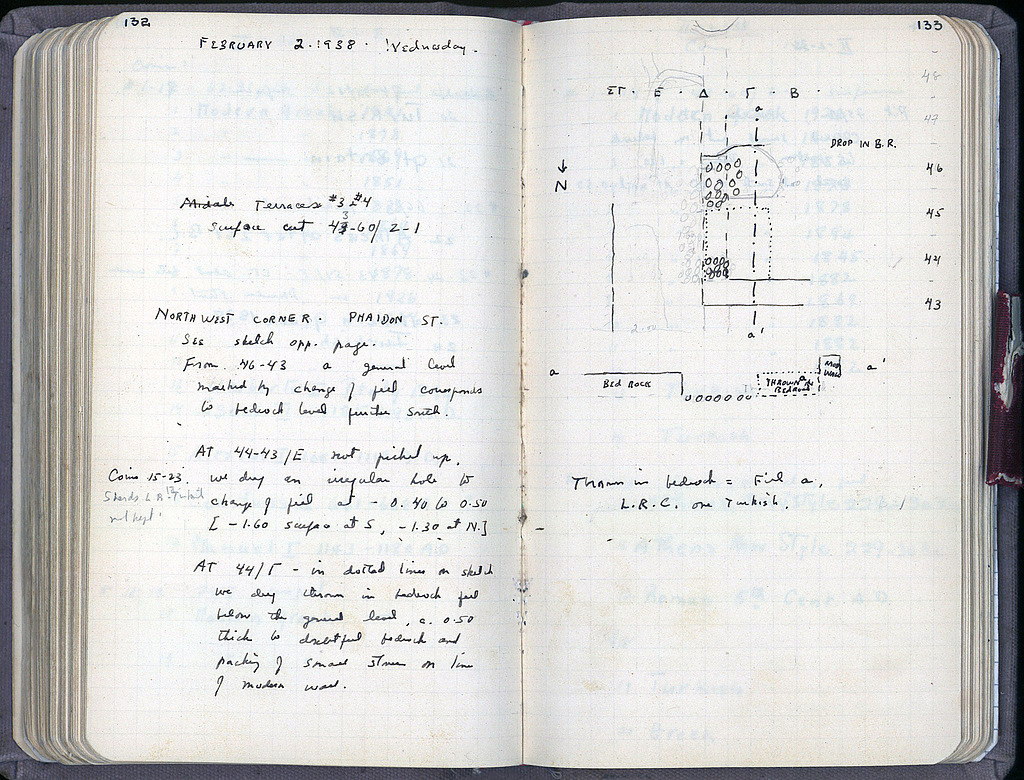 132
FEBRUARY 2 · 1938 · Wednesday.
Terraces #3 & #4
Surface cut 43-60/2-1
NORTHWEST CORNER. PHAIDON ST.
See sketch opp. page.
From 46-43 a general level
marked by change of fill corresponds
to bedrock level further South.
At 44-43/E not picked up,
Coins 15-23.
we dug an irregular hole to
Sherds L.R. Turkish
not kept.
change of fill at -0.40 to 0.50
[-1.60 surface at S, -1.30 at N.]
At 44/Γ - in dotted lines on sketch
we dug thrown in bedrock fill
below the general level, c. 0.50
thick to doubtful bedrock and
packing of small stones on line
of modern wall.
133
48
ΣΤ · E · Δ · Γ · B ·
a
47
DROP IN B.R.
46
N
45
44
43
2.00
a'
a
BED ROCK
THROWN IN
BEDROCK
MOD
WALL
a'
Thrown in bedrock = Fill a,
L.R.C. one Turkish.